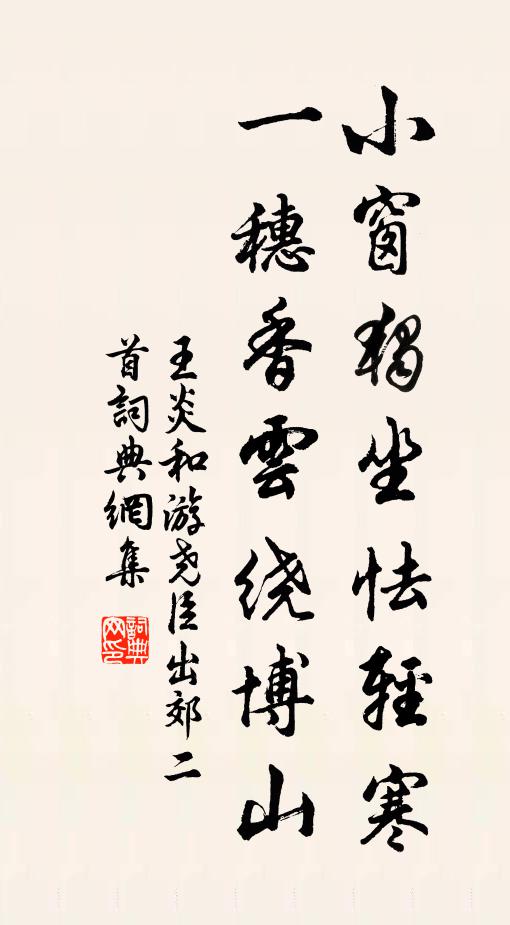 小窗獨坐怯輕寒
一穗香雲绕博山
王炎和游尧臣出郊二
首詞典網集
詞典
网印